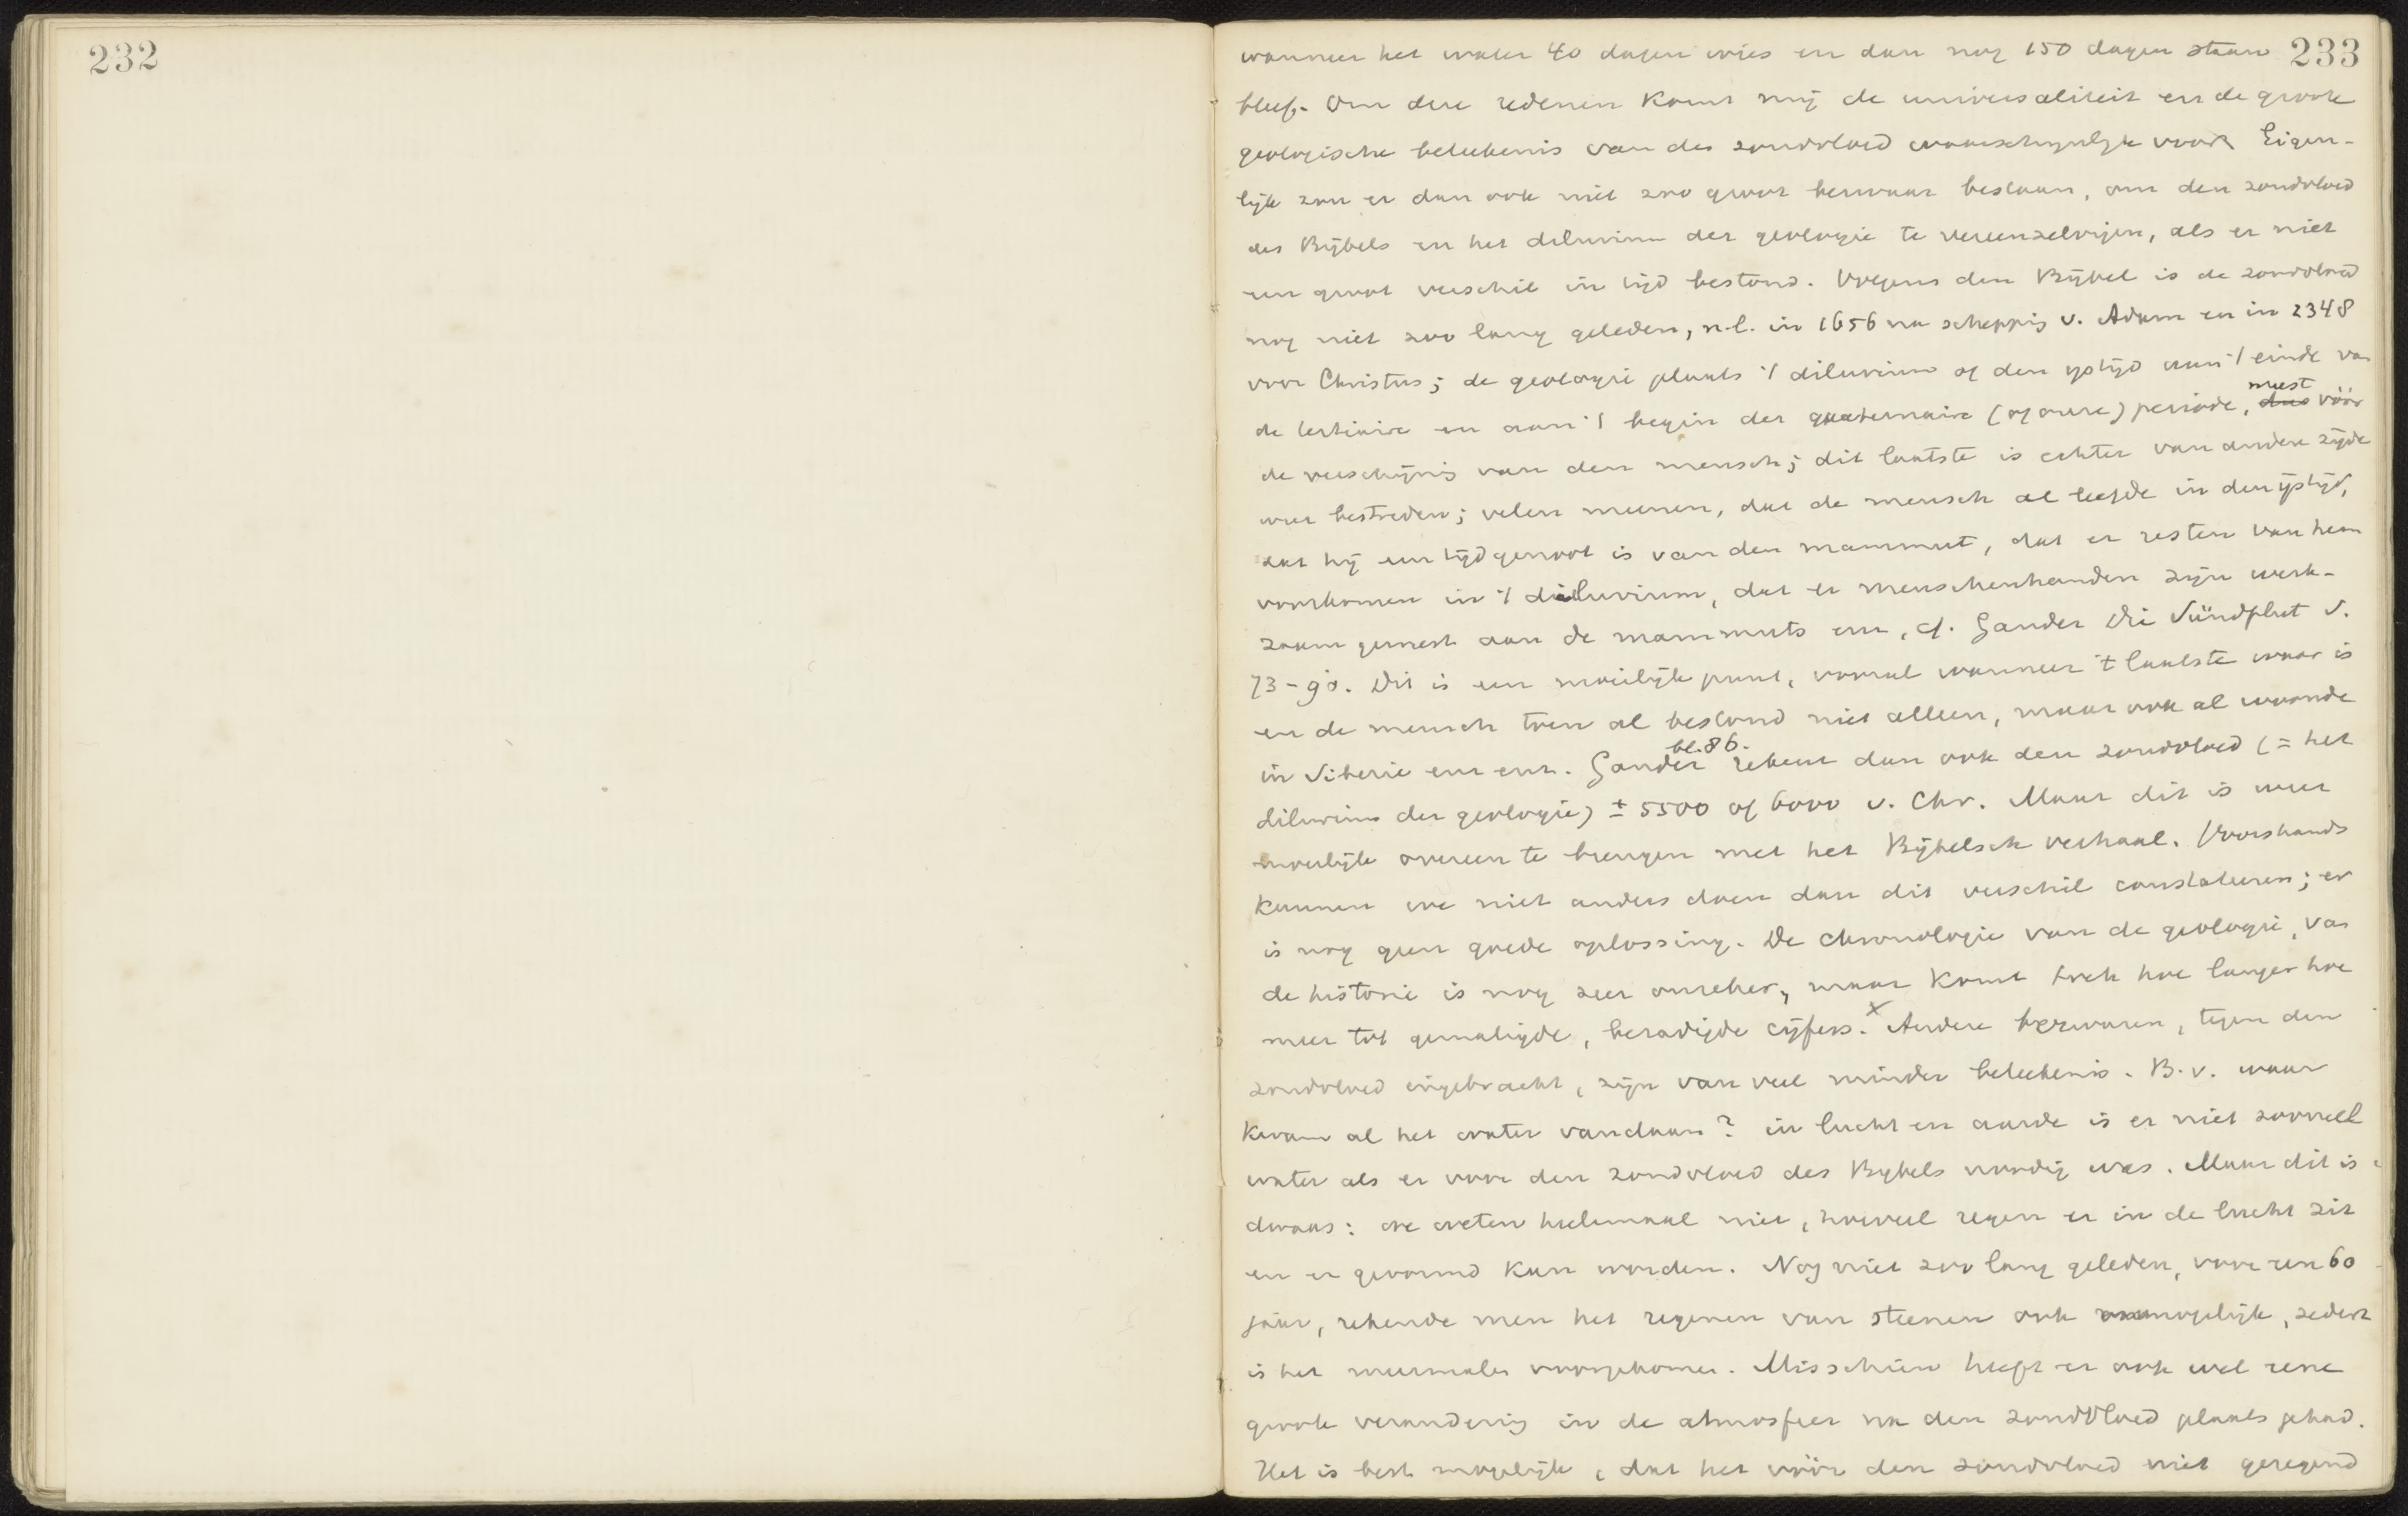 232
233
wanneer het water 40 dagen wies en dan nog 150 dagen staan
bleef. Om deze redenen komt mij de universaliteit en de groote
geologische beteekenis van den zondvloed waarschynlyk voor. Eigen-
lijk zou er dan ook niet zoo groot bezwaar bestaan, om den zondvloed
des Bijbels en het diluvium der geologie te vereenzelvigen, als er niet
een groot verschil in tijd bestond. Volgens den Bijbel is de zondvloed
nog niet zoo lang geleden, n.l. in 1656 na schepping v. Adam en in 2348
voor Christus; de geologie plaatst 't diluvium of den ystijd aan 't einde van
de tertiaire en aan 't begin der quaternaire (of onze) periode, dus meest vóór
de verschijning van den mensch; dit laatste is echter van andere zijde
weer bestreden; velen meenen, dat de mensch al leefde in den ijstijd,
dat hij een tijdgenoot is van den mammut, dat er resten van hem
voorkomen in 't diluvium, dat er menschenhanden zijn werk-
zaam geweest aan de mammuts enz, cf. Gander Die Sündflut S.
73-90. Dit is een moeilijk punt, vooral wanneer 't laatste waar is
en de mensch toen al bestond niet alleen, maar ook al woonde
in Siberie enz enz. Gander bl. 86. rekent dan ook den zondvloed (= het
diluvium der geologie) ± 5500 of 6000 v. Chr. Maar dit is weer
moeilijk overeen te brengen met het Bijbelsch verhaal. Voorshands
kunnen we niet anders doen dan dit verschil constateeren; er
is nog geen goede oplossing. De chronologie van de geologie, van
de historie is nog zeer onzeker, maar komt toch hoe langer hoe
meer tot gematigde, bezadigde cijfers. x Andere bezwaren, tegen den
zondvloed ingebracht, zijn van veel minder beteekenis. B.v. waar
kwam al het water vandaan? in lucht en aarde is er niet zooveel
water als er voor den zondvloed des Bybels noodig was. Maar dit is
dwaas: we weten heelemaal niet, hoeveel regen er in de lucht zit
en er gevormd kan worden. Nog niet zoo lang geleden, voor een 60
jaar, rekende men het regenen van steenen ook onmogelijk, sedert
is het meermalen voorgekomen. Misschien heeft er ook wel eene
groote verandering in de atmosfeer na den zondvloed plaats gehad.
Het is best mogelijk, dat het vóór den zondvloed niet geregend